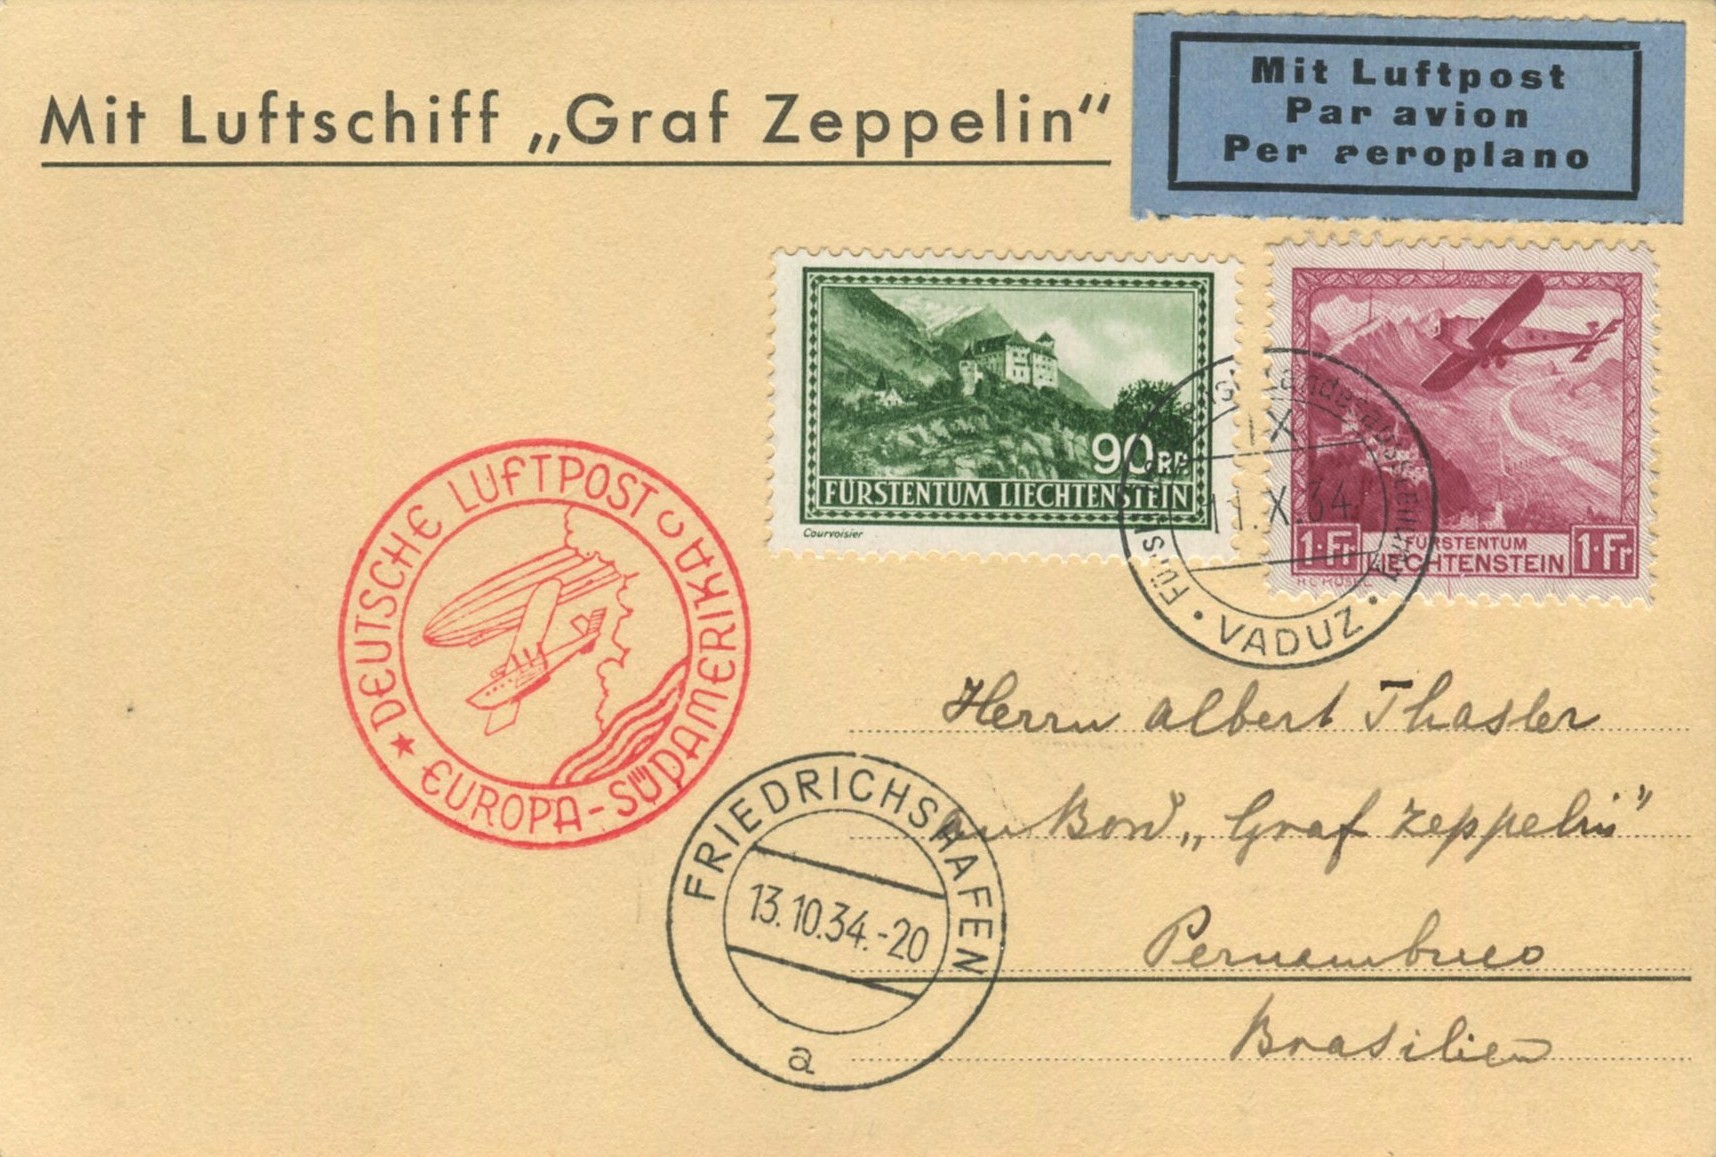 Mit Luftschiff „Graf Zeppelin“
Mit Luftpost
Par avion
Per aeroplano
90 RP
FÜRSTENTUM LIECHTENSTEIN
Courvoisier
1·Fr
FÜRSTENTUM
LIECHTENSTEIN
1·Fr
11.X.34
• VADUZ •
DEUTSCHE LUFTPOST
EUROPA-SÜDAMERIKA
Herrn Albert Thasler
an Bord „Graf Zeppelin“
Pernambuco
Brasilien
FRIEDRICHSHAFEN
13.10.34.-20
a